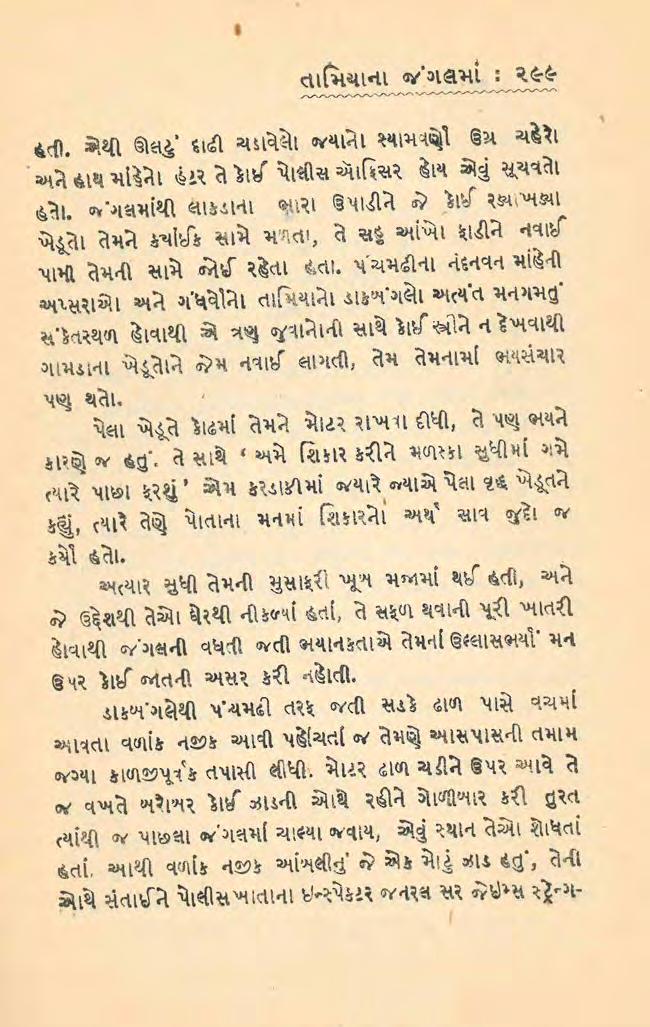 તામિયાના જંગલમાં : ૨૯૯
હતી. એથી ઊલટું દાઢી ચડાવેલો જયાનો શ્યામવર્ણો ઉગ્ર ચહેરો
અને હાથ માંહેનો હંટર તે કોઈ પોલીસ ઑફિસર હોય એવું સૂચવતો
હતો. જંગલમાંથી લાકડાના ભારા ઉપાડીને જે કોઈ રડ્યાખડ્યા
ખેડૂતો તેમને કયાંઈક સામે મળતા, તે સહુ આંખો ફાડીને નવાઈ
પામી તેમની સામે જોઈ રહેતા હતા. પંચમઢીના નંદનવન માંહેની
અપ્સરાઓ અને ગંધર્વોનો તામિયાનો ડાકબંગલો અત્યંત મનગમતું
સંકેતસ્થળ હોવાથી એ ત્રણ જુવાનોની સાથે કોઈ સ્ત્રીને ન દેખવાથી
ગામડાના ખેડૂતોને જેમ નવાઈ લાગતી, તેમ તેમનામાં ભયસંચાર
પણ થતો.
પેલા ખેડૂતે કોઢમાં તેમને મોટર રાખવા દીધી, તે પણ ભયને
કારણે જ હતું. તે સાથે ‘ અમે શિકાર કરીને મળસ્કા સુધીમાં ગમે
ત્યારે પાછા ફરશું ’ એમ કરડાકીમાં જયારે જયાએ પેલા વૃદ્ધ ખેડૂતને
કહ્યું, ત્યારે તેણે પોતાના મનમાં શિકારનો અર્થ સાવ જુદો જ
કર્યો હતો.
અત્યાર સુધી તેમની મુસાફરી ખૂબ મજામાં થઈ હતી, અને
જે ઉદ્દેશથી તેઓ ઘેરથી નીકળ્યાં હતાં, તે સફળ થવાની પૂરી ખાતરી
હોવાથી જંગલની વધતી જતી ભયાનકતાએ તેમનાં ઉલ્લાસભર્યાં મન
ઉપર કોઈ જાતની અસર કરી નહોતી.
ડાકબંગલેથી પંચમઢી તરફ જતી સડકે ઢાળ પાસે વચમાં
આવતા વળાંક નજીક આવી પહોંચતાં જ તેમણે આસપાસની તમામ
જગ્યા કાળજીપૂર્વક તપાસી લીધી. મોટર ઢાળ ચડીને ઉપર આવે તે
જ વખતે બરોબર કોઈ ઝાડની ઓથે રહીને ગોળીબાર કરી તુરત
ત્યાંથી જ પાછલા જંગલમાં ચાલ્યા જવાય, એવું સ્થાન તેઓ શોધતાં
હતાં. આથી વળાંક નજીક આંબલીનું જે એક મોટું ઝાડ હતું, તેની
ઓથે સંતાઈને પોલીસખાતાના ઇન્સ્પેકટર જનરલ સર જેઈમ્સ સ્ટ્રેન્ગ-